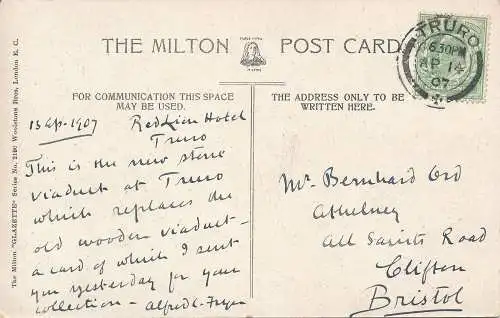 THE MILTON POST CARD
TRURO
6.30PM
AP 14
07
FOR COMMUNICATION THIS SPACE
MAY BE USED.
THE ADDRESS ONLY TO BE
WRITTEN HERE.
The Milton "GLAZETTE" Series No. Woolstone Bros., London E.C.
13 Ap - 1907 Red Lion Hotel
Truro
This is the new stone
viaduct at Truro
which replaces the
old wooden viaduct -
a card of which I sent
you yesterday for your
collection - Alfred C. Fryer
Mr. Bernhard Ord
Athelney
All Saints Road
Clifton
Bristol